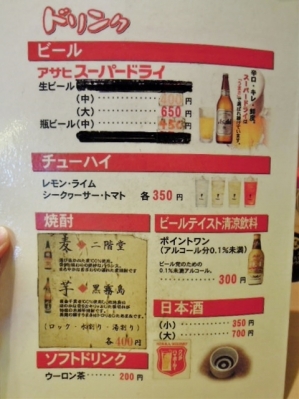 ドリンク
ビール
アサヒスーパードライ
生ビール
(中)
(大) 650
瓶ビール (中) 450
辛口・キレ・鮮度。
スーパードライは
チューハイ
レモン・ライム
シークヮーサー・トマト 各350円
焼酎
麦 二階堂
芋 黒霧島
(ロック・水割り・湯割り)
各400円
ソフトドリンク
ウーロン茶 200円
ビールテイスト清涼飲料
ポイントワン
(アルコール分0.1%未満)
ビール党のための
0.1%未満アルコール。
300円
日本酒
(小) 350円
(大) 700円